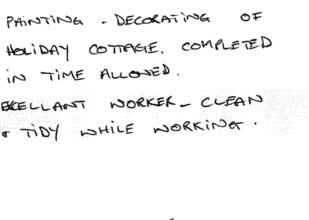 PAINTING - DECORATING OF
HOLIDAY COTTAGE. COMPLETED
IN TIME ALLOWED.
EXCELLANT WORKER - CLEAN
& TIDY WHILE WORKING.